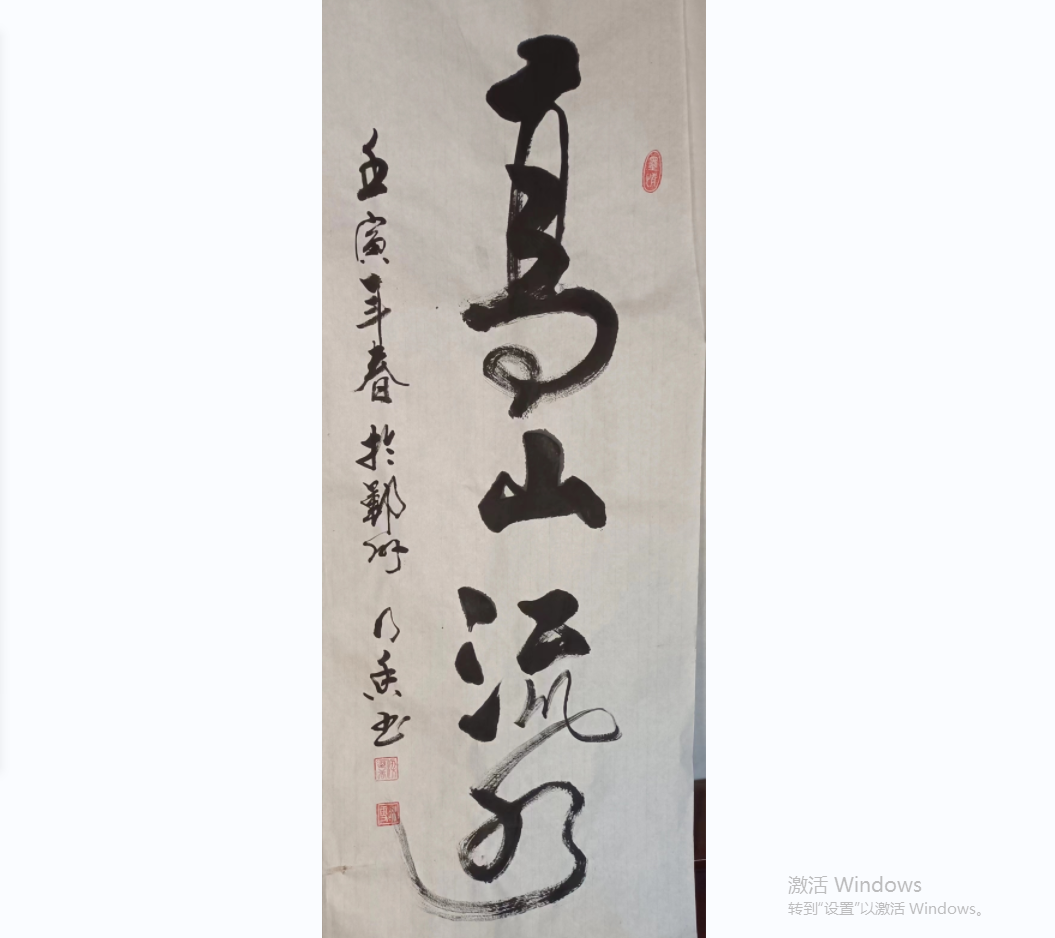 高山流水
壬寅年春於鄭州
香书
激活 Windows
转到“设置”以激活 Windows。